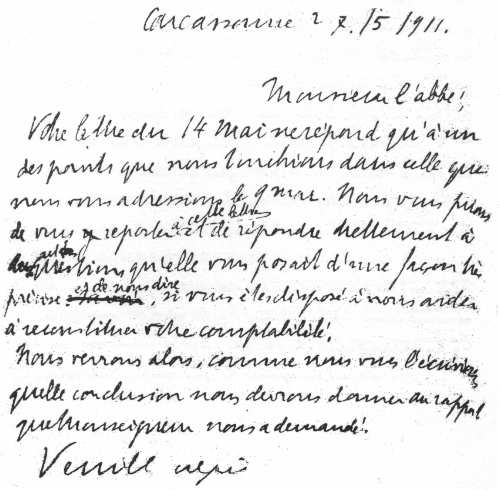 Carcassonne 27./5/1911.
Monsieur l'abbé,
Votre lettre du 14 Mai ne répond qu'à un
des points que nous touchions dans celle que
nous vous adressions le 9 mai. Nous vous prions
de vous y reporter à cette lettre et de répondre nettement à
questions qu'elle vous posait d'une façon très
précise et de nous dire, si vous êtes disposé à nous aider
à reconstituer votre comptabilité.
Nous verrons alors, comme nous vous l'écrivions
quelle conclusion nous devrons donner au rappot
que Monseigneur nous a demandé.
Veuillez